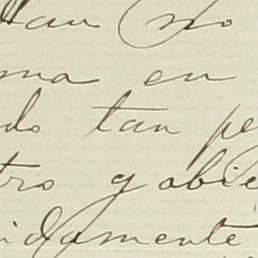 tan no
ma en
do tan pe
tro gobie
idamente